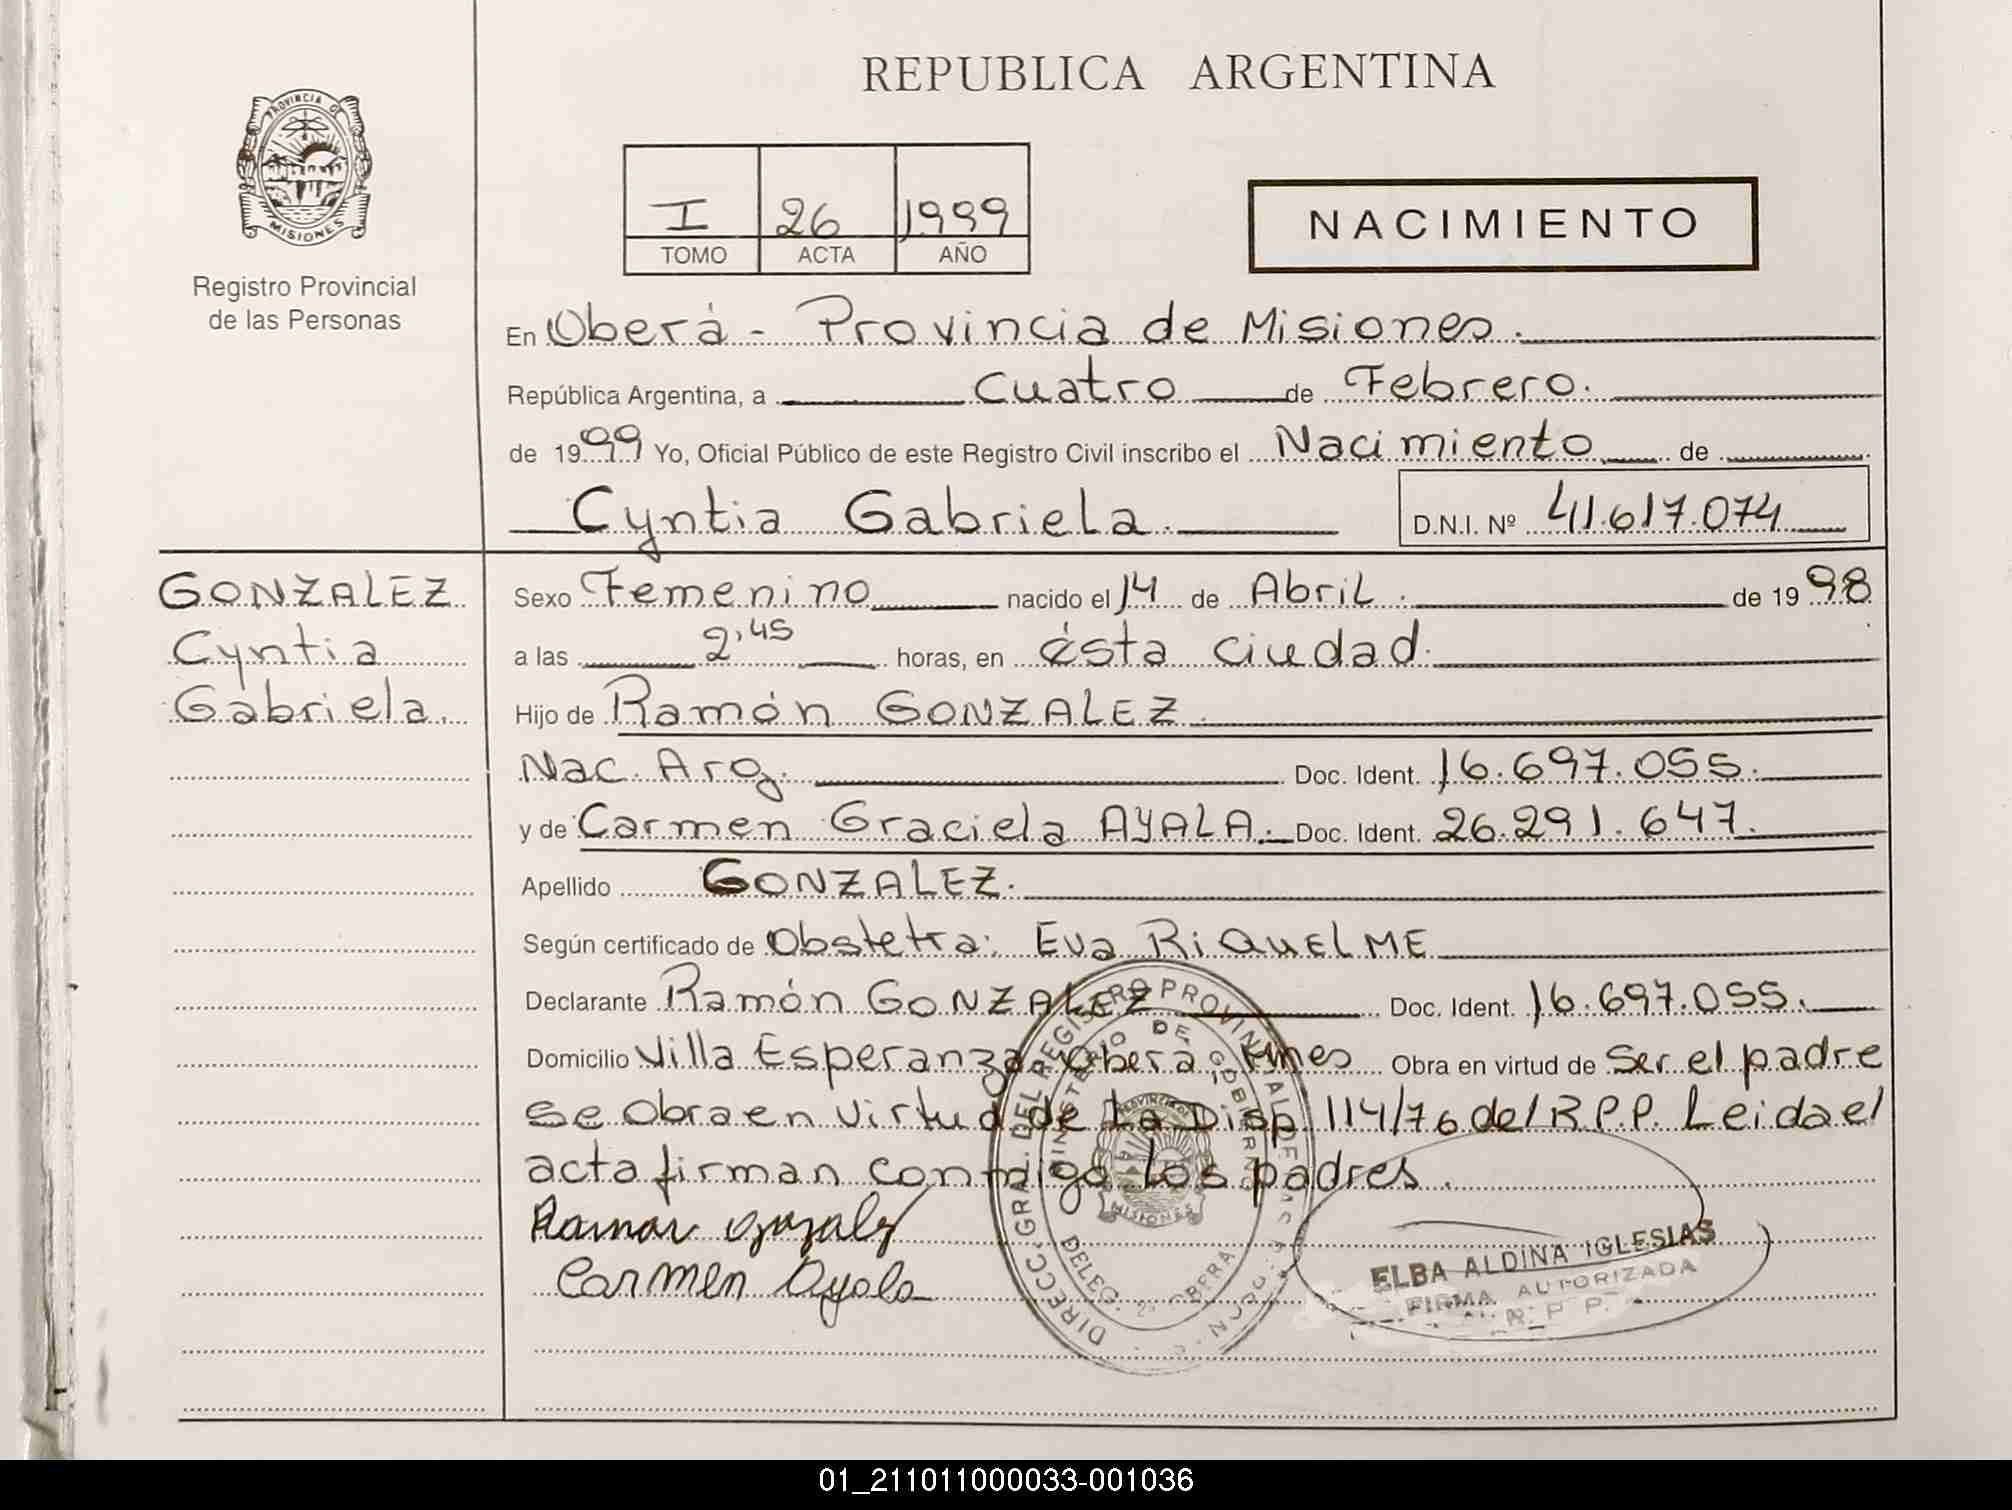 REPUBLICA ARGENTINA
PROVINCIA DE
MISIONES
Registro Provincial
de las Personas
I 26 1999
TOMO ACTA AÑO
NACIMIENTO
En Oberá - Provincia de Misiones.
República Argentina, a cuatro de Febrero.
de 1999 Yo, Oficial Público de este Registro Civil inscribo el Nacimiento de
Cyntia Gabriela.
D.N.I. Nº 41.617.074
GONZALEZ
Cyntia
Gabriela.
Sexo Femenino nacido el 14 de Abril. de 1998
a las 2,45 horas, en ésta ciudad.
Hijo de Ramón GONZALEZ.
Nac. Arg. Doc. Ident. 16.697.055.
y de Carmen Graciela AYALA. Doc. Ident. 26.291.647.
Apellido GONZALEZ.
Según certificado de Obstetra: Eva RIQUELME
Declarante Ramón GONZALEZ Doc. Ident. 16.697.055.
Domicilio Villa Esperanza Oberá, Mnes Obra en virtud de Ser el padre
se Obra en virtud de La Disp. 114/76 del R.P.P. Leida el
acta firman conmigo los padres.
Carmen Ayala
DIRECC. GRAL. DEL REGISTRO PROVINCIAL DE
MINISTERIO DE GOBIERNO
MISIONES
DELEG. 2ª OBERA
ELBA ALDINA IGLESIAS
FIRMA AUTORIZADA
R. P. P.
01_211011000033-001036